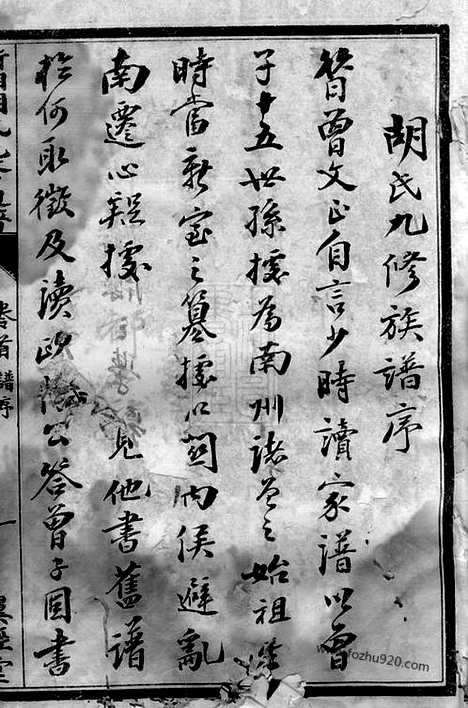 胡氏九修族譜序
昔曾文正自言少時讀家譜以曾
子十五世孫據為南州諸曾之始祖
時當新室之篡據以關內侯避亂
南遷心疑據 見他書舊譜
於何取徵及讀歐陽公答曾子固書
卷首 譜序
一
fozhu920.com